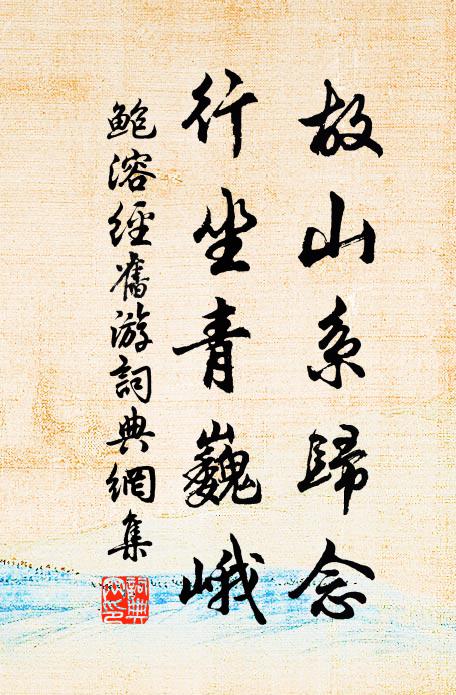 故山系歸念
行坐青巍峨
鮑溶經舊游詞典網集